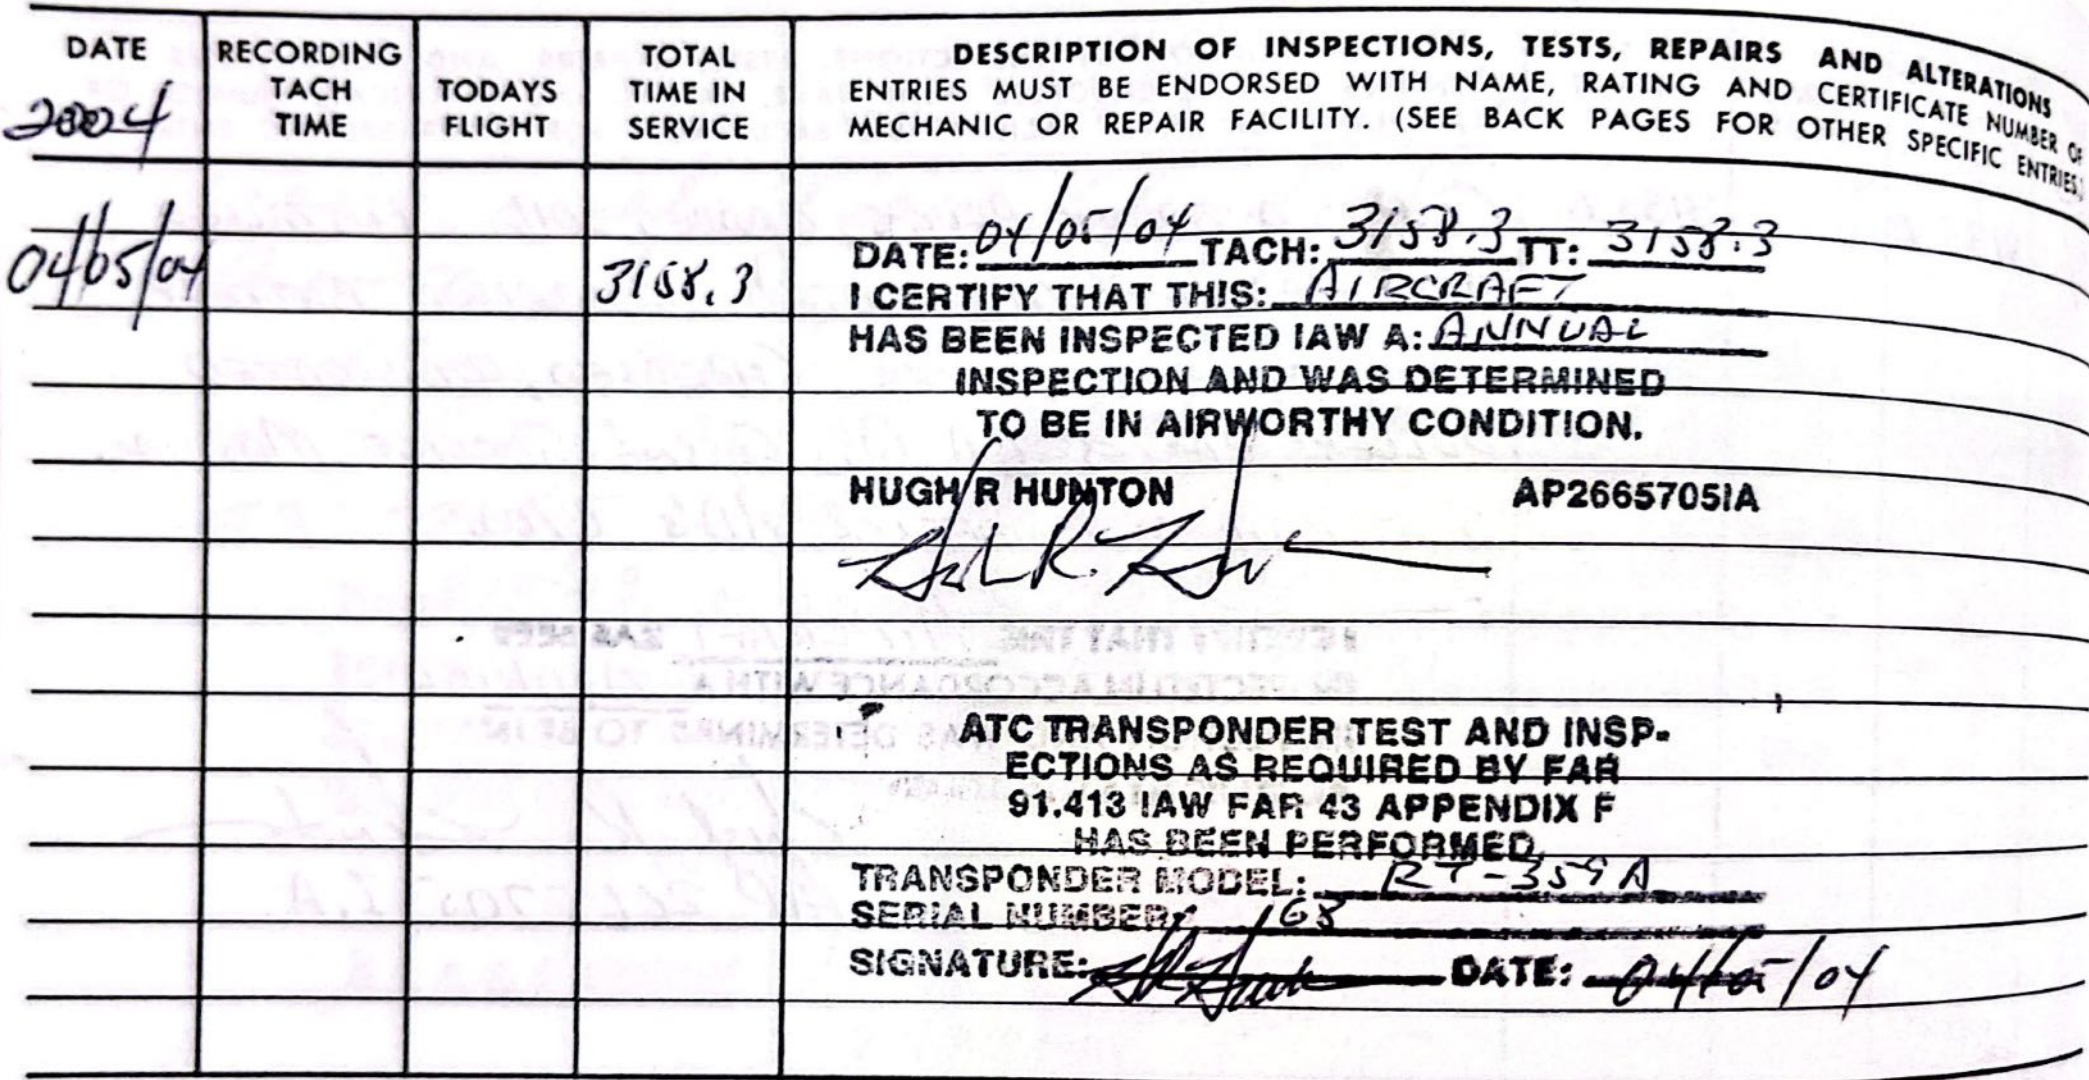 DATE
2004
RECORDING
TACH
TIME
TODAYS
FLIGHT
TOTAL
TIME IN
SERVICE
DESCRIPTION OF INSPECTIONS, TESTS, REPAIRS AND ALTERATIONS
ENTRIES MUST BE ENDORSED WITH NAME, RATING AND CERTIFICATE NUMBER OF
MECHANIC OR REPAIR FACILITY. (SEE BACK PAGES FOR OTHER SPECIFIC ENTRIES.)
04/05/04
3158.3
DATE: 04/05/04 TACH: 3158.3 TT: 3158.3
I CERTIFY THAT THIS: AIRCRAFT
HAS BEEN INSPECTED IAW A: ANNUAL
INSPECTION AND WAS DETERMINED
TO BE IN AIRWORTHY CONDITION.
HUGH R HUNTON AP2665705IA
ATC TRANSPONDER TEST AND INSP-
ECTIONS AS REQUIRED BY FAR
91.413 IAW FAR 43 APPENDIX F
HAS BEEN PERFORMED.
TRANSPONDER MODEL: RT-359A
SERIAL NUMBER: 168
SIGNATURE: DATE: 04/05/04